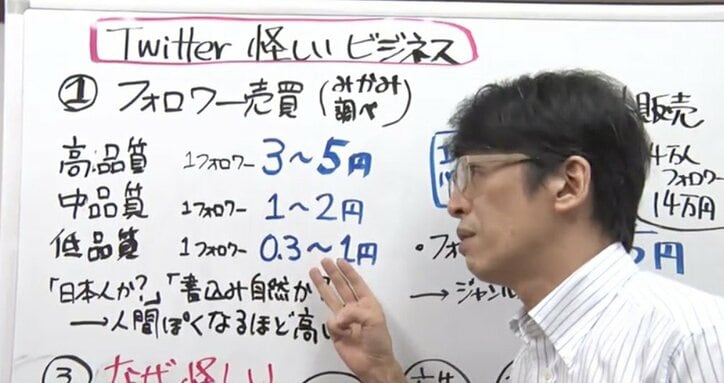 Twitter 怪しいビジネス
① フォロワー売買 (みかみ調べ)
高品質 1フォロワー 3〜5円
中品質 1フォロワー 1〜2円
低品質 1フォロワー 0.3〜1円
「日本人か?」「書込み自然か?
→人間ぽくなるほど高い
③ なぜ怪しい
販売
4万人
フォロワー
14万円
・フォ
5円
→ジャンル